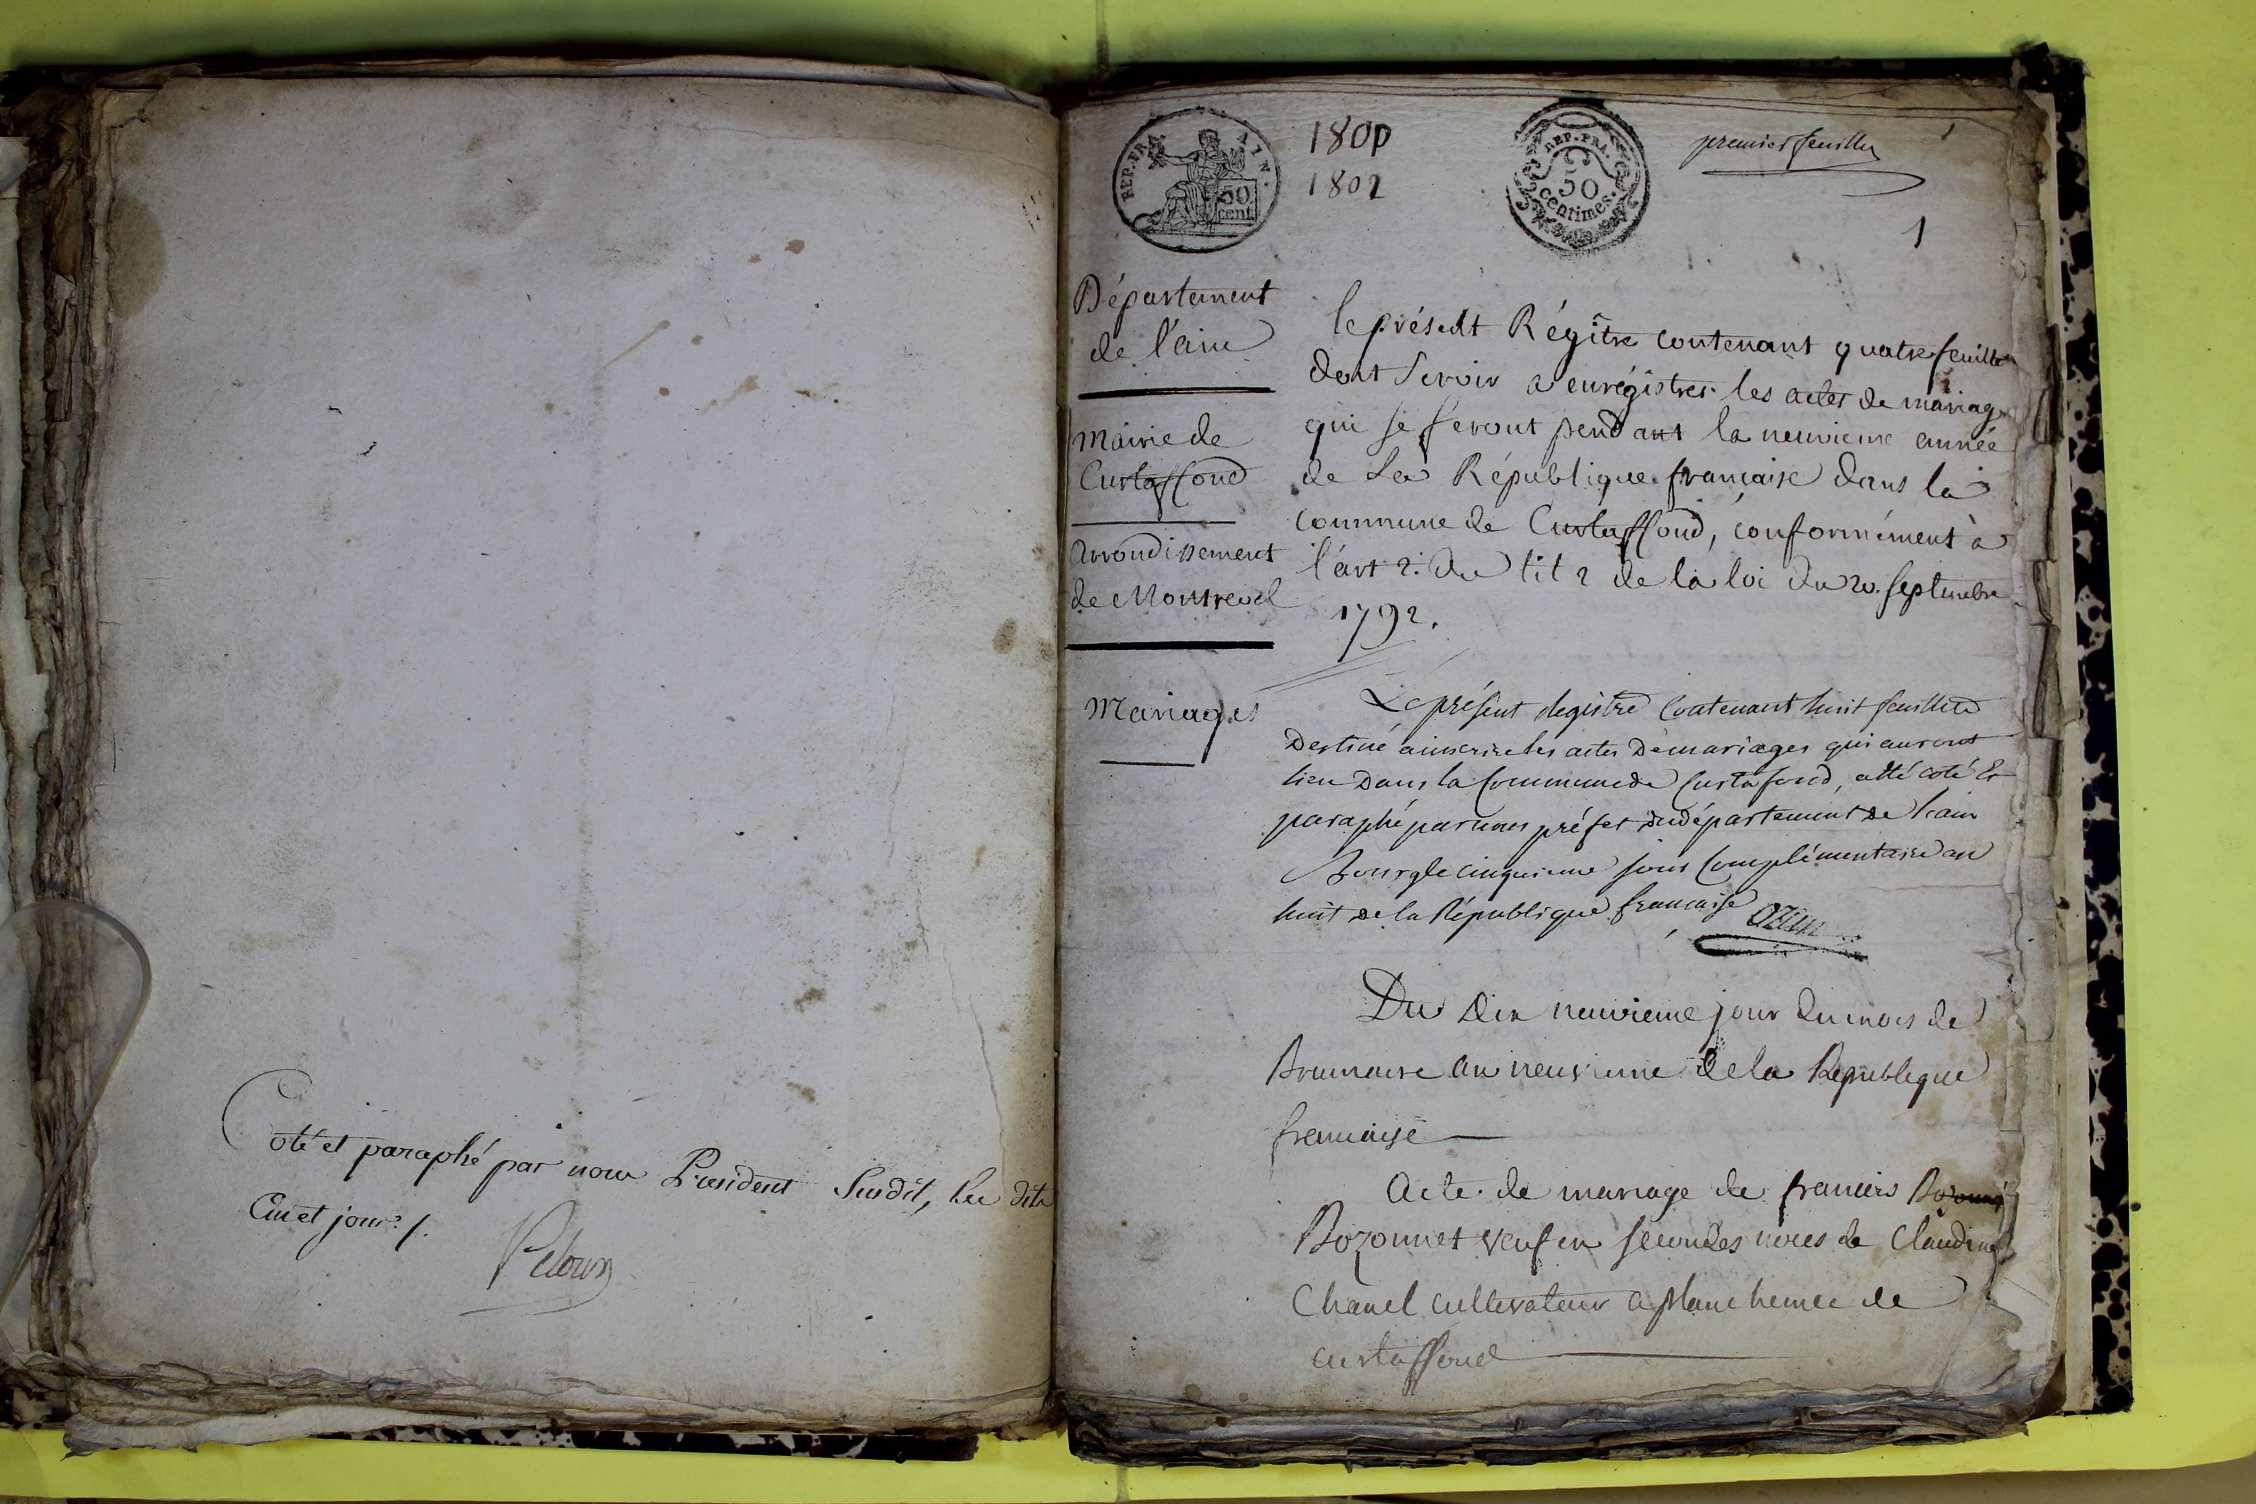 Coté et paraphé par nous President Susdit, les dits
an et jour ./.
REP. FRA. AIN.
50
cent.
1800
1802
REP. FRA.
50
centimes.
premier feuillet
1
1
Département
de l'ain
Mairie de
Curtaffond
Arrondissement
de Montrevel
Mariages
le présent Régître contenant quatre feuilles
doit servir a enrégistrer les actes de mariage
qui se feront pendant la neuvieme année
de La République française dans la
commune de Curtaffond, conformément à
l'art 2. du tit 2 de la loi du 20. septembre
1792.
Le présent Régistre contenant huit feuillets
Destiné a inscrire les actes De mariages qui auront
lieu Dans la Commune de Curtafond, a été coté &
paraphé par nous préfet du département de l'ain
Bourg le cinquieme jour Complémentaire an
huit de la République française
Du Dix neuvieme jour du mois de
Brumaire an neuvieme de la Republique
francaise
Acte de mariage de francois Bozonnet
Bozonnet veuf en secondes noces de Claudine
Chanel cultivateur a planchemee de
curtaffond